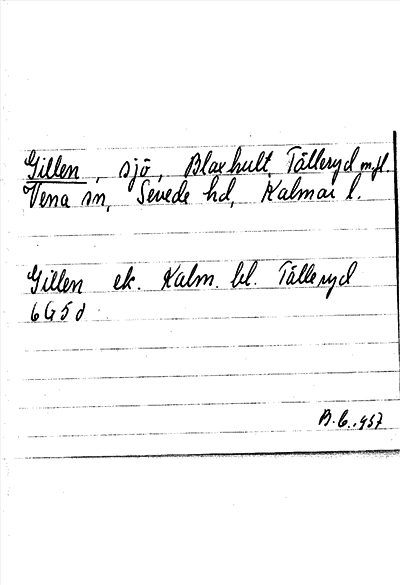 Gillen, sjö, Blaxhult, Tälleryd m.fl.
Vena sn, Sevede hd, Kalmar l.
Gillen ek. Kalm. bl. Tälleryd
6G5d